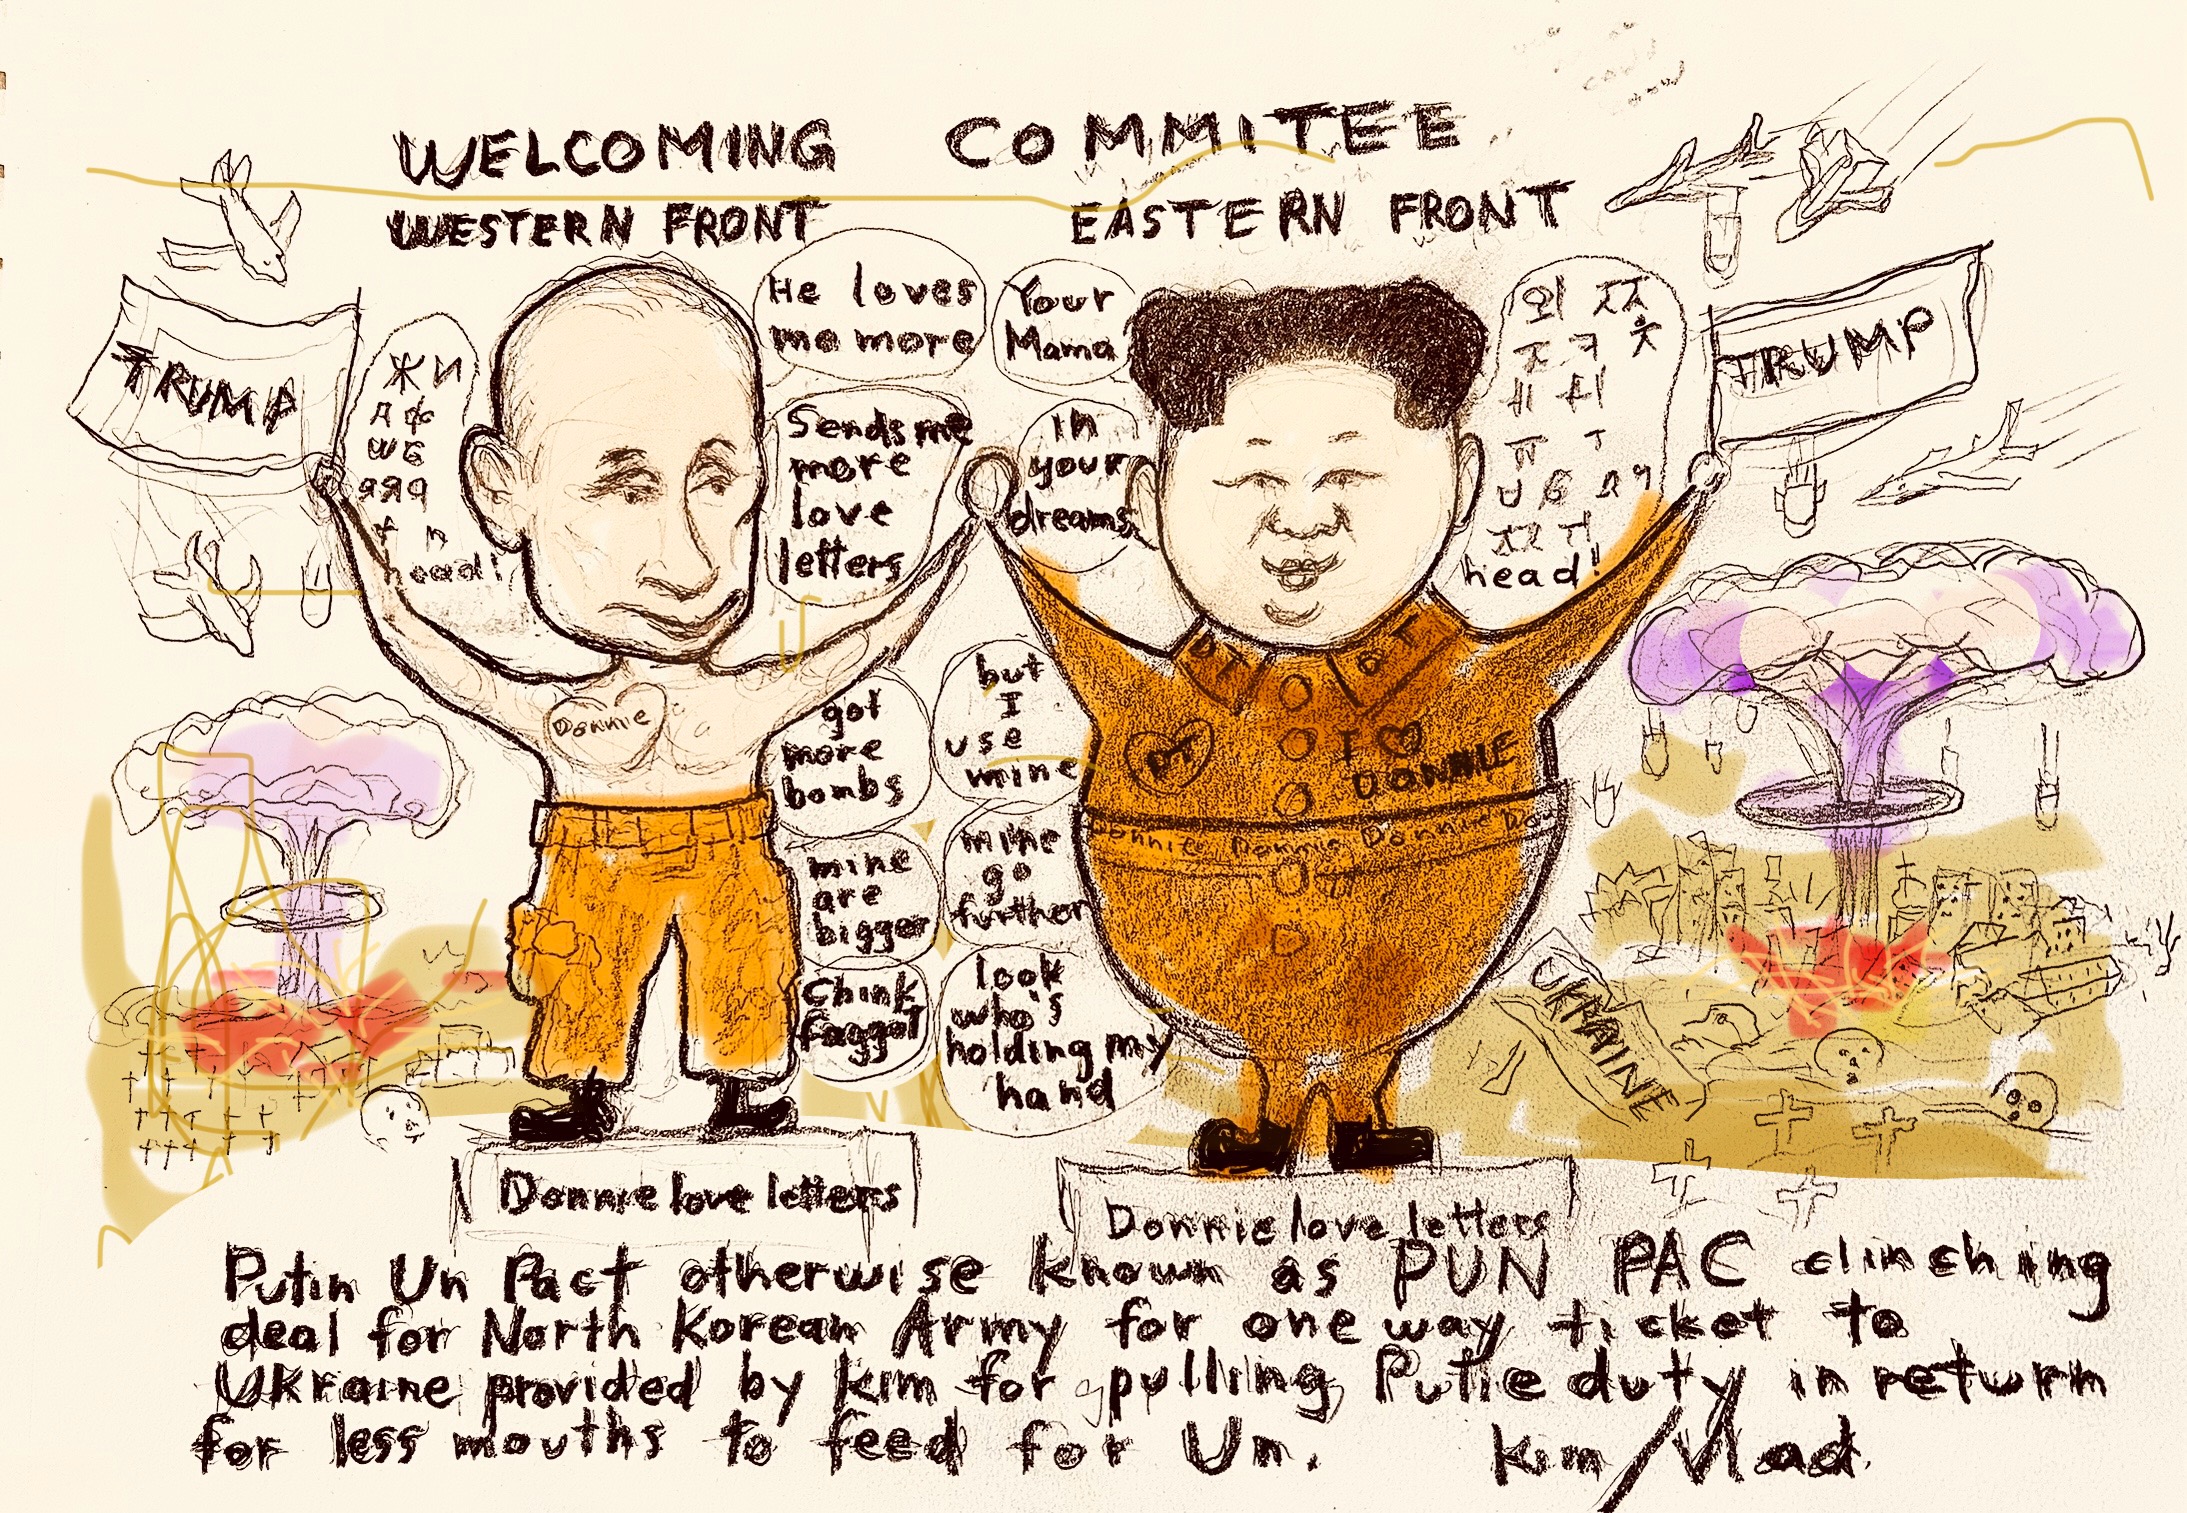 WELCOMING COMMITEE
WESTERN FRONT
EASTERN FRONT
TRUMP
ЖИ
head!
He loves
me more
Your
Mama
Sends me
more
love
letters
in
your
dreams
외
head!
TRUMP
Donnie
got
more
bombs
but
I
use
mine
DT
DT
DT
I
DONNIE
Donnie Donnie Donnie Do
mine
are
bigger
mine
go
further
Chink
faggot
look
who's
holding my
hand
UKRAINE
Donnie love letters
Donnie love letters
Putin Un Pact otherwise known as PUN PAC clinching
deal for North Korean Army for one way ticket to
Ukraine provided by Kim for pulling Putie duty in return
for less mouths to feed for Un. Kim/Vlad.